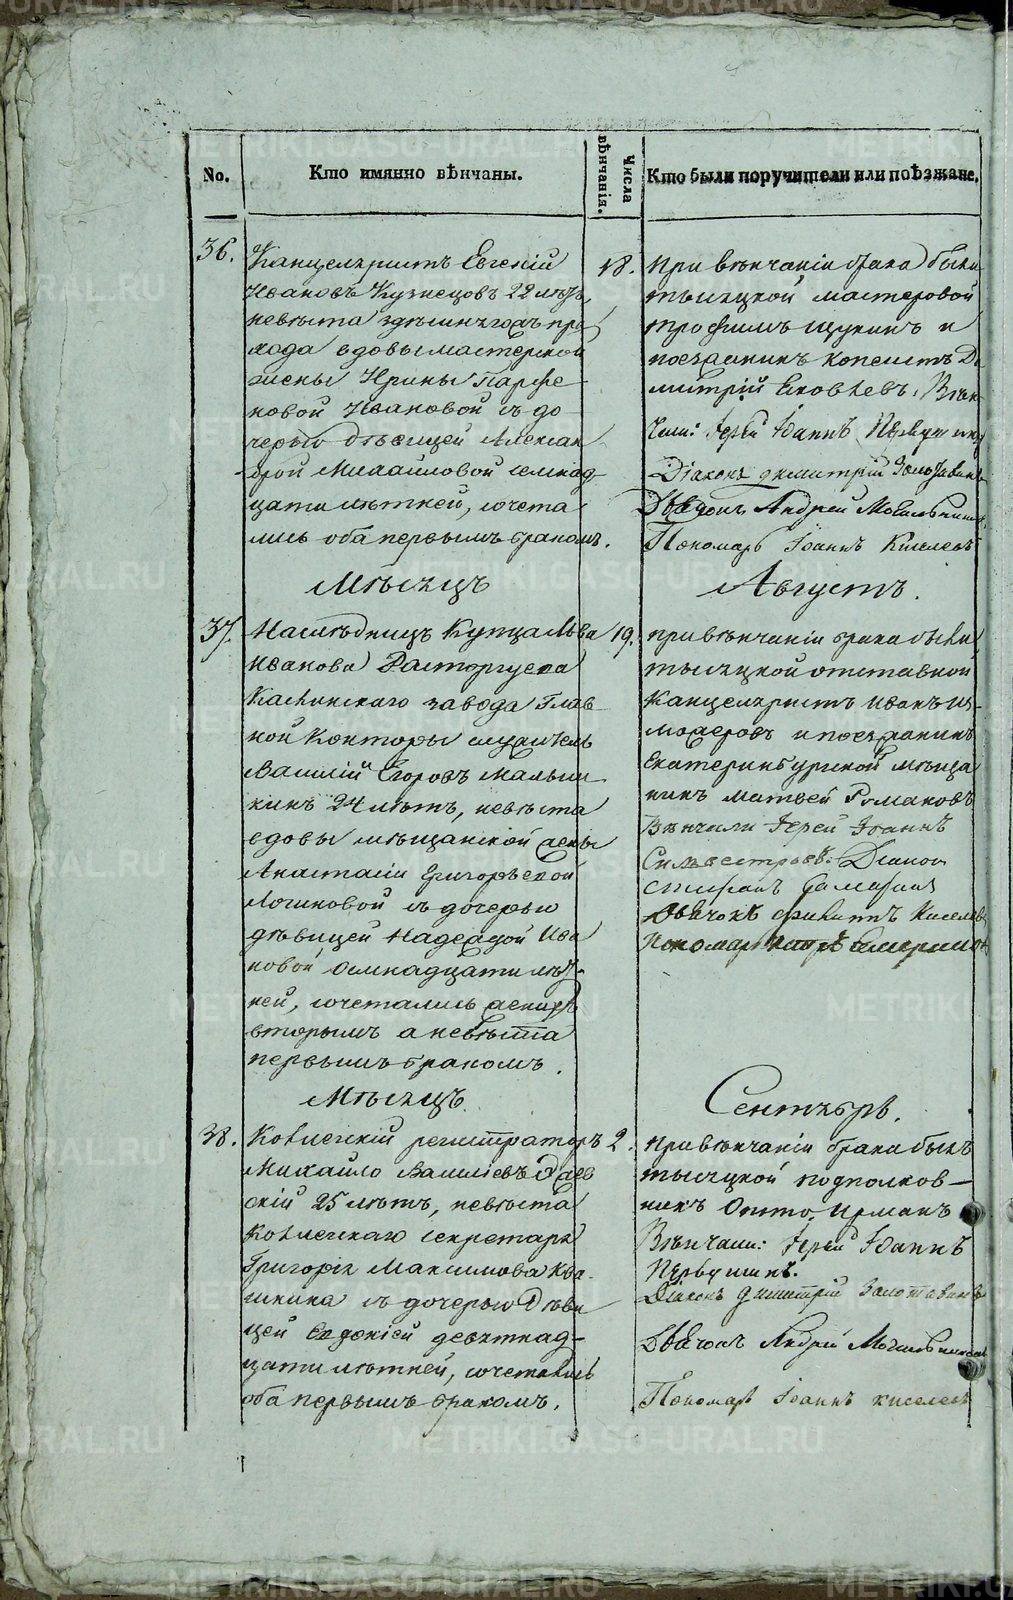 No.
Кто имянно вѣнчаны.
Числа вѣнчанія.
Кто были поручители или поѣзжане.
36.
Канцеляристъ Евгеній
Ивановъ Кузнецовъ 22 лѣтъ,
невѣста здѣшняго при
хода вдовы мастерской
жены Ирины Парѳе
новой Ивановой съ до
черью дѣвицей Алексан
дрой Михайловой семнад
цати лѣтней, сочета
лись оба первымъ бракомъ.
18.
При вѣнчаніи брака были
тысяцкой мастеровой
Трофимъ Щукинъ и
поезжанинъ копеистъ Ди
митрій Яковлевъ. Вѣн
чали: Іерей Іоаннъ
Діаконъ Димитрій
Дьячокъ Андрей
Пономарь Іоаннъ Киселевъ
Мѣсяцъ
Августъ.
37.
Наслѣдницъ Купца Льва
Иванова Расторгуева
Каслинскаго завода Глав
ной Конторы служитель
Василій Егоровъ
24 лѣтъ, невѣста
вдовы мѣщанской жены
Анастасіи Григорьевой
Логиновой съ дочерью
дѣвицей Надеждой Ива
новой осмнадцати лѣт
ней, сочетались женихъ
вторымъ а невѣста
первымъ бракомъ.
19.
При вѣнчаніи брака были
тысяцкой отставной
Канцеляристъ Иванъ
и поезжанинъ
Екатеринбургской мѣща
нинъ Матвей Романовъ
Вѣнчали Іерей Іоаннъ
Силвестровъ. Діакон
Стефанъ
Дьячокъ Филиппъ Киселевъ
Пономарь
Мѣсяцъ
Сентябрь.
38.
Колежскій регистраторъ
Михайло Васильевъ
25 лѣтъ, невѣста
Колежскаго секретаря
Григорія Максимова Ква
шнина съ дочерью Дѣви
цей Евдокіей девятнад-
цати лѣтней, сочетались
оба первымъ бракомъ.
2.
При вѣнчаніи брака былъ
тысяцкой подполков-
никъ Отто. Ирманъ
Вѣнчали: Іерей Іоаннъ
Первушинъ.
Діаконъ Димитрій
Дьячокъ Андрей
Пономарь Іоаннъ Киселевъ
METRIKI.GASO-URAL.RU